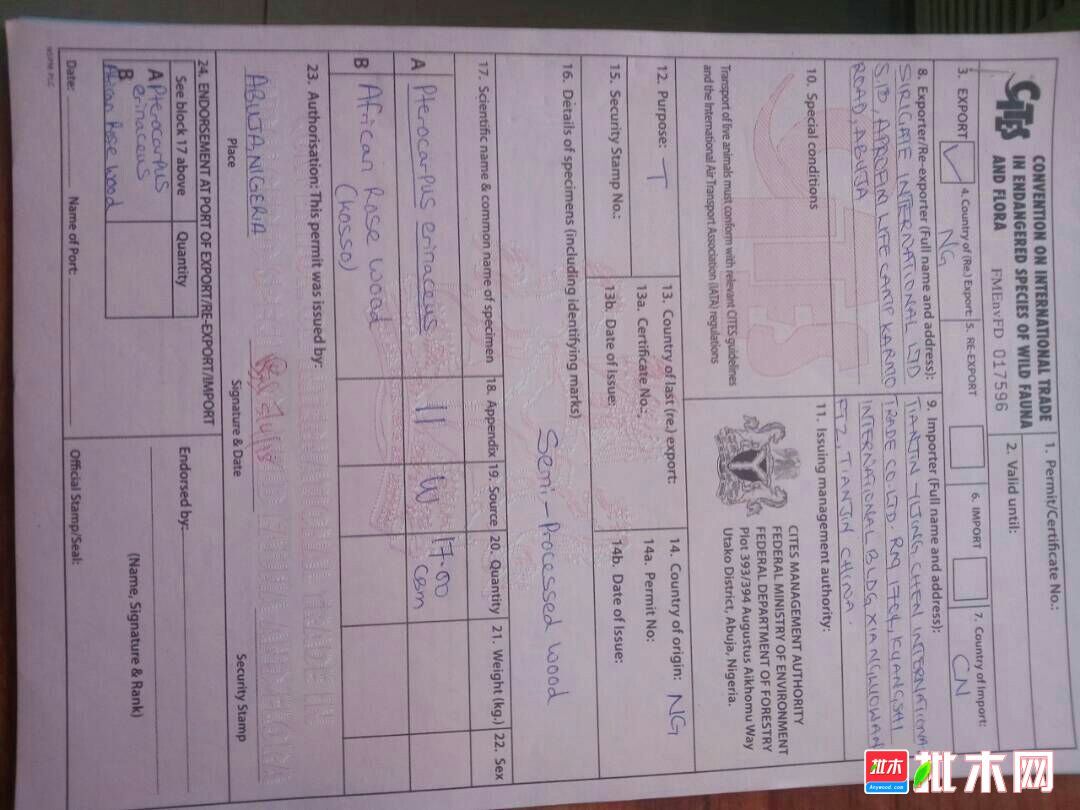 CITES
CONVENTION ON INTERNATIONAL TRADE
IN ENDANGERED SPECIES OF WILD FAUNA
AND FLORA
FMEnvFD 017596
1. Permit/Certificate No.:
2. Valid until:
3. EXPORT
4. Country of (Re.) Export:
NG
5. RE-EXPORT
6. IMPORT
7. Country of Import:
CN
8. Exporter/Re-exporter (Full name and address):
INTERNATIONAL LTD
LIFE CAMP KARMO
ROAD, ABUJA
9. Importer (Full name and address):
TIANJIN CHEN INTERNATIONAL
TRADE CO. LTD. RM 1704, KUANGSHI
INTERNATIONAL BLDG XIANGLUOWAN
FTZ, TIANJIN CHINA.
10. Special conditions
Transport of live animals must conform with relevant CITES guidelines
and the International Air Transport Association (IATA) regulations
11. Issuing management authority:
CITES MANAGEMENT AUTHORITY
FEDERAL MINISTRY OF ENVIRONMENT
FEDERAL DEPARTMENT OF FORESTRY
Plot 393/394 Augustus Aikhomu Way
Utako District, Abuja, Nigeria.
12. Purpose: T
13. Country of last (re.) export:
13a. Certificate No.:
13b. Date of Issue:
14. Country of origin: NG
14a. Permit No:
14b. Date of Issue:
15. Security Stamp No.:
16. Details of specimens (including identifying marks)
Semi-Processed Wood
17. Scientific name & common name of specimen
18. Appendix
19. Source
20. Quantity
21. Weight (kg.)
22. Sex
A Pterocarpus erinaceus
II
W
17.00
CBM
B African Rose Wood
(Kosso)
23. Authorisation: This permit was issued by:
ABUJA, NIGERIA
Place
Signature & Date
Security Stamp
24. ENDORSEMENT AT PORT OF EXPORT/RE-EXPORT/IMPORT
See block 17 above
Quantity
A Pterocarpus
erinaceus
B
African Rose wood
Endorsed by:
(Name, Signature & Rank)
Date:
Name of Port:
Official Stamp/Seal:
NSPM PLC
批木
Anywood.com
批木网